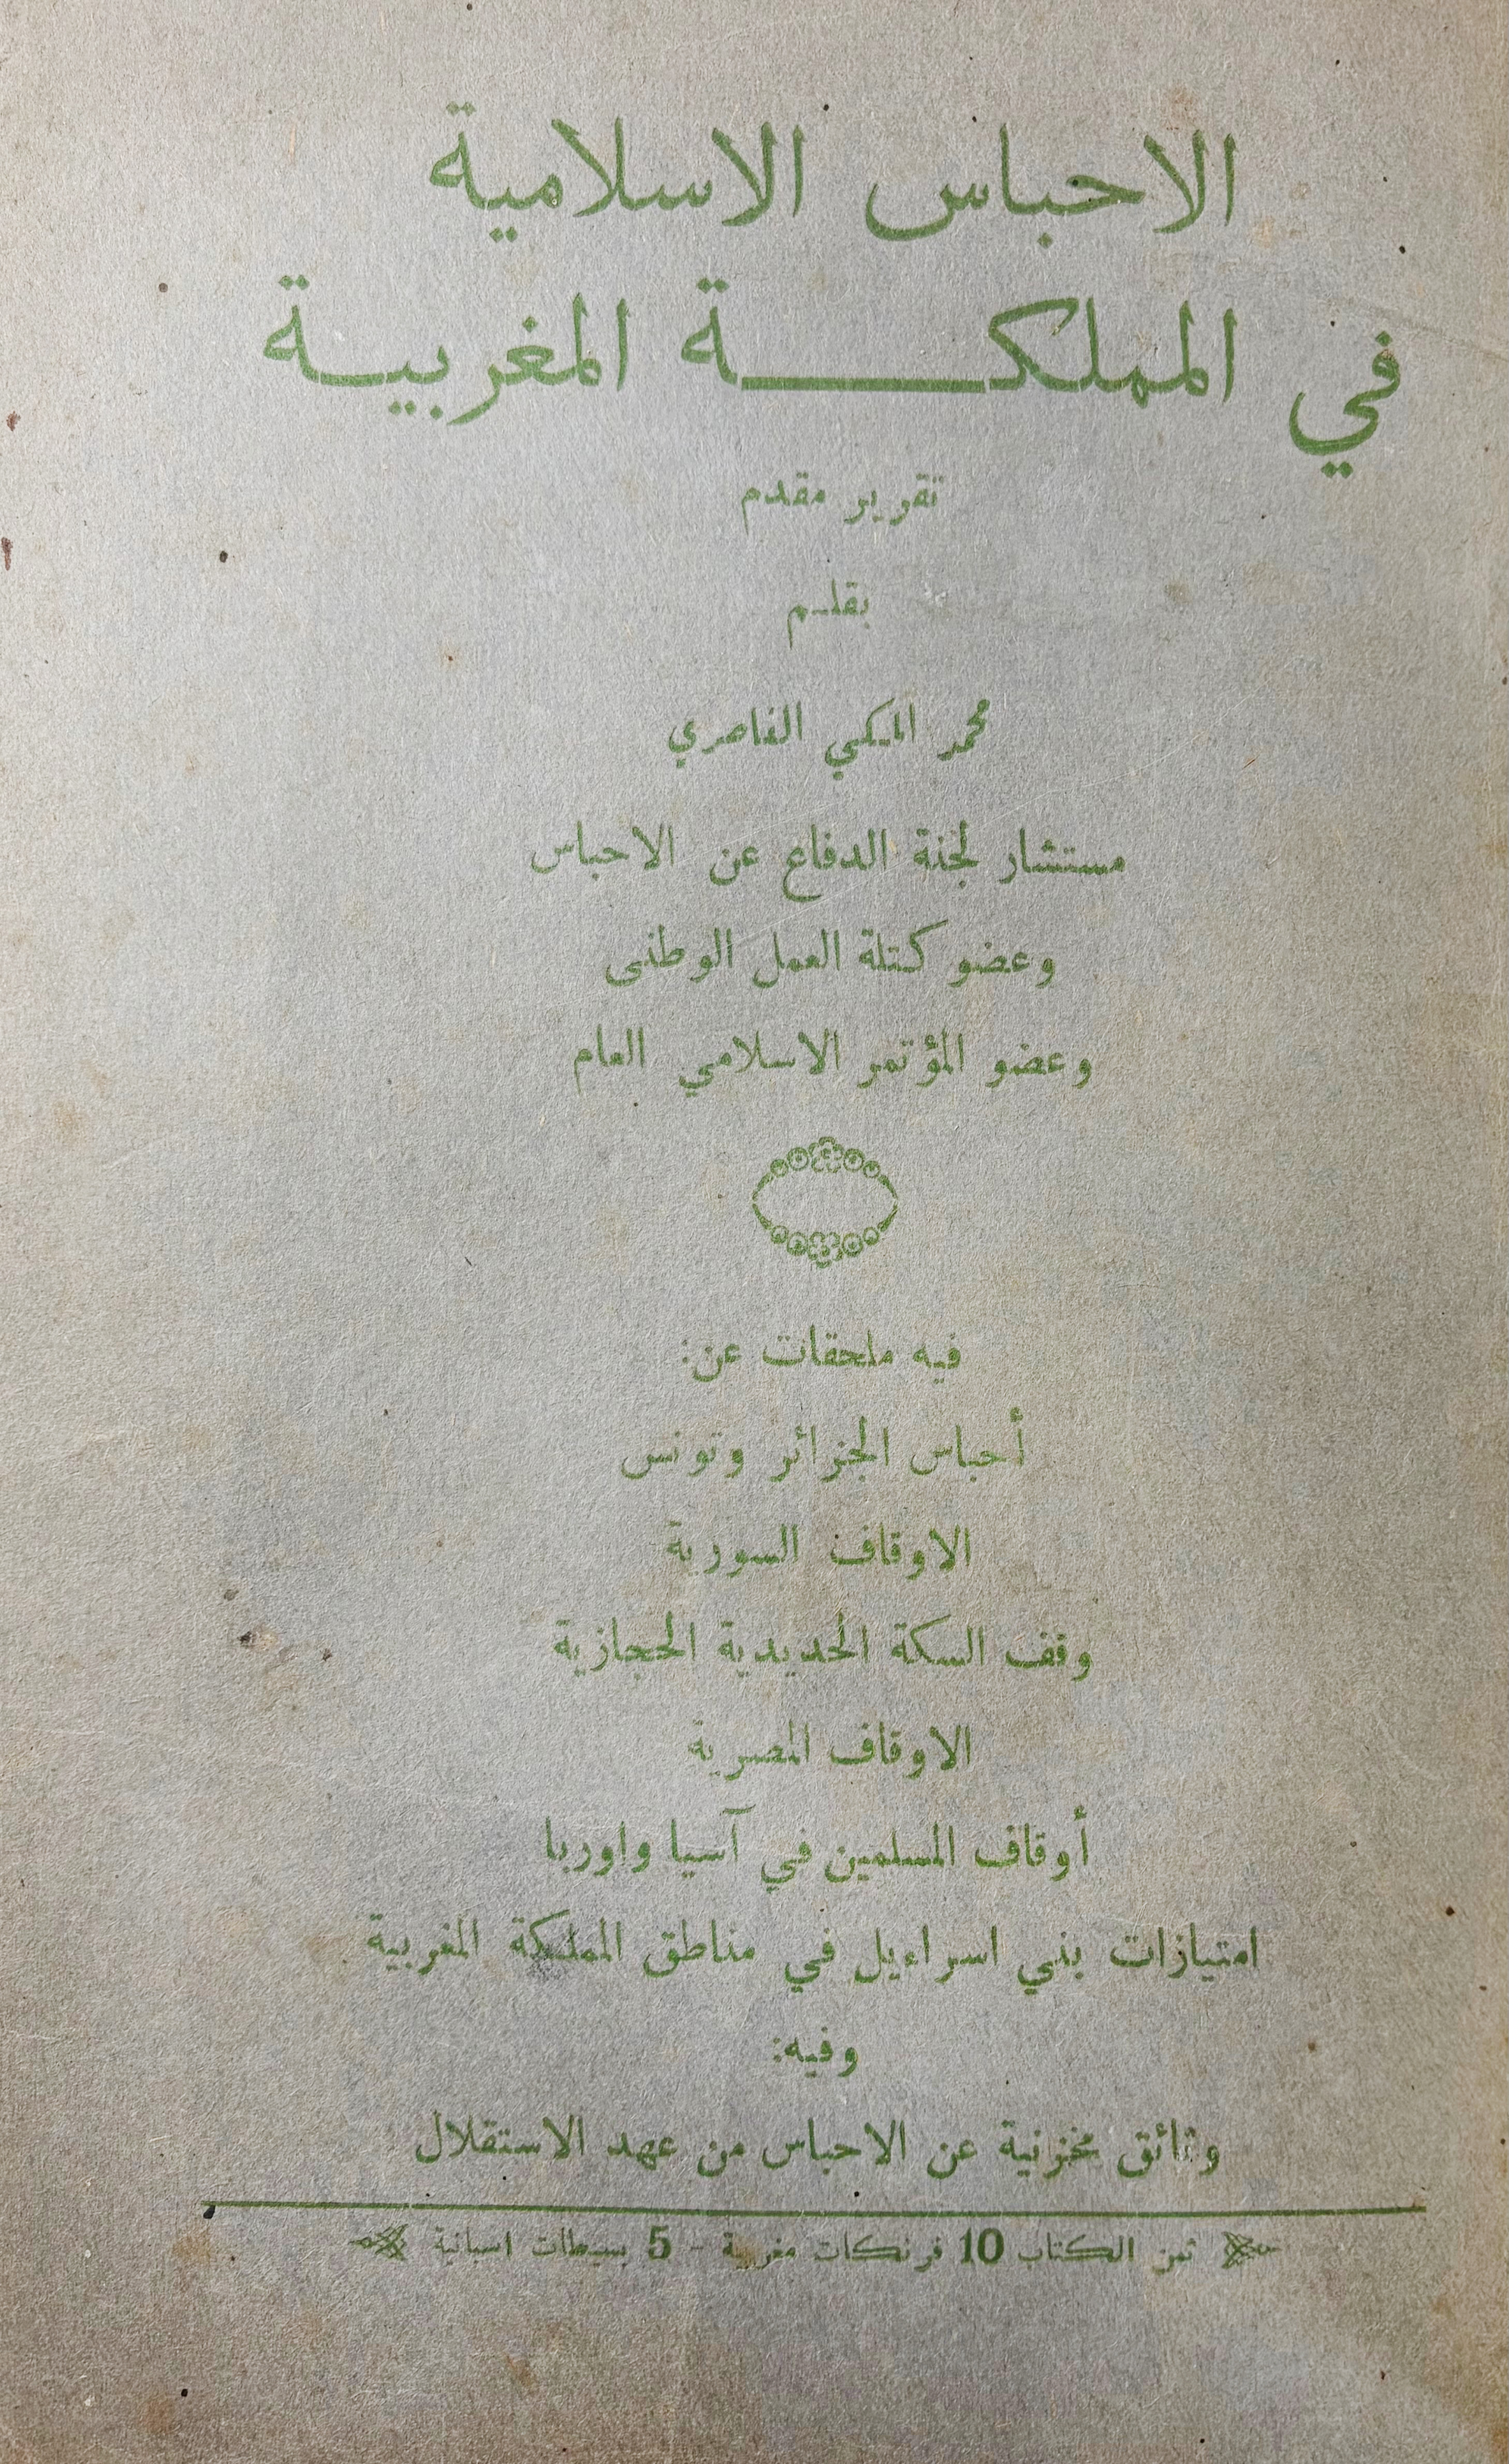 الاحباس الاسلامية
في المملكة المغربية
تقرير مقدم
بقلم
محمد المكي الناصري
مستشار لجنة الدفاع عن الاحباس
وعضو كتلة العمل الوطنى
وعضو المؤتمر الاسلامي العام
فيه ملحقات عن:
أحباس الجزائر وتونس
الاوقاف السورية
وقف السكة الحديدية الحجازية
الاوقاف المصرية
أوقاف المسلمين في آسيا واوربا
امتيازات بني اسراءيل في مناطق المملكة المغربية
وفيه:
وثائق مخزنية عن الاحباس من عهد الاستقلال
ثمن الكتاب 10 فرنكات مغربية - 5 بسيطات اسبانية